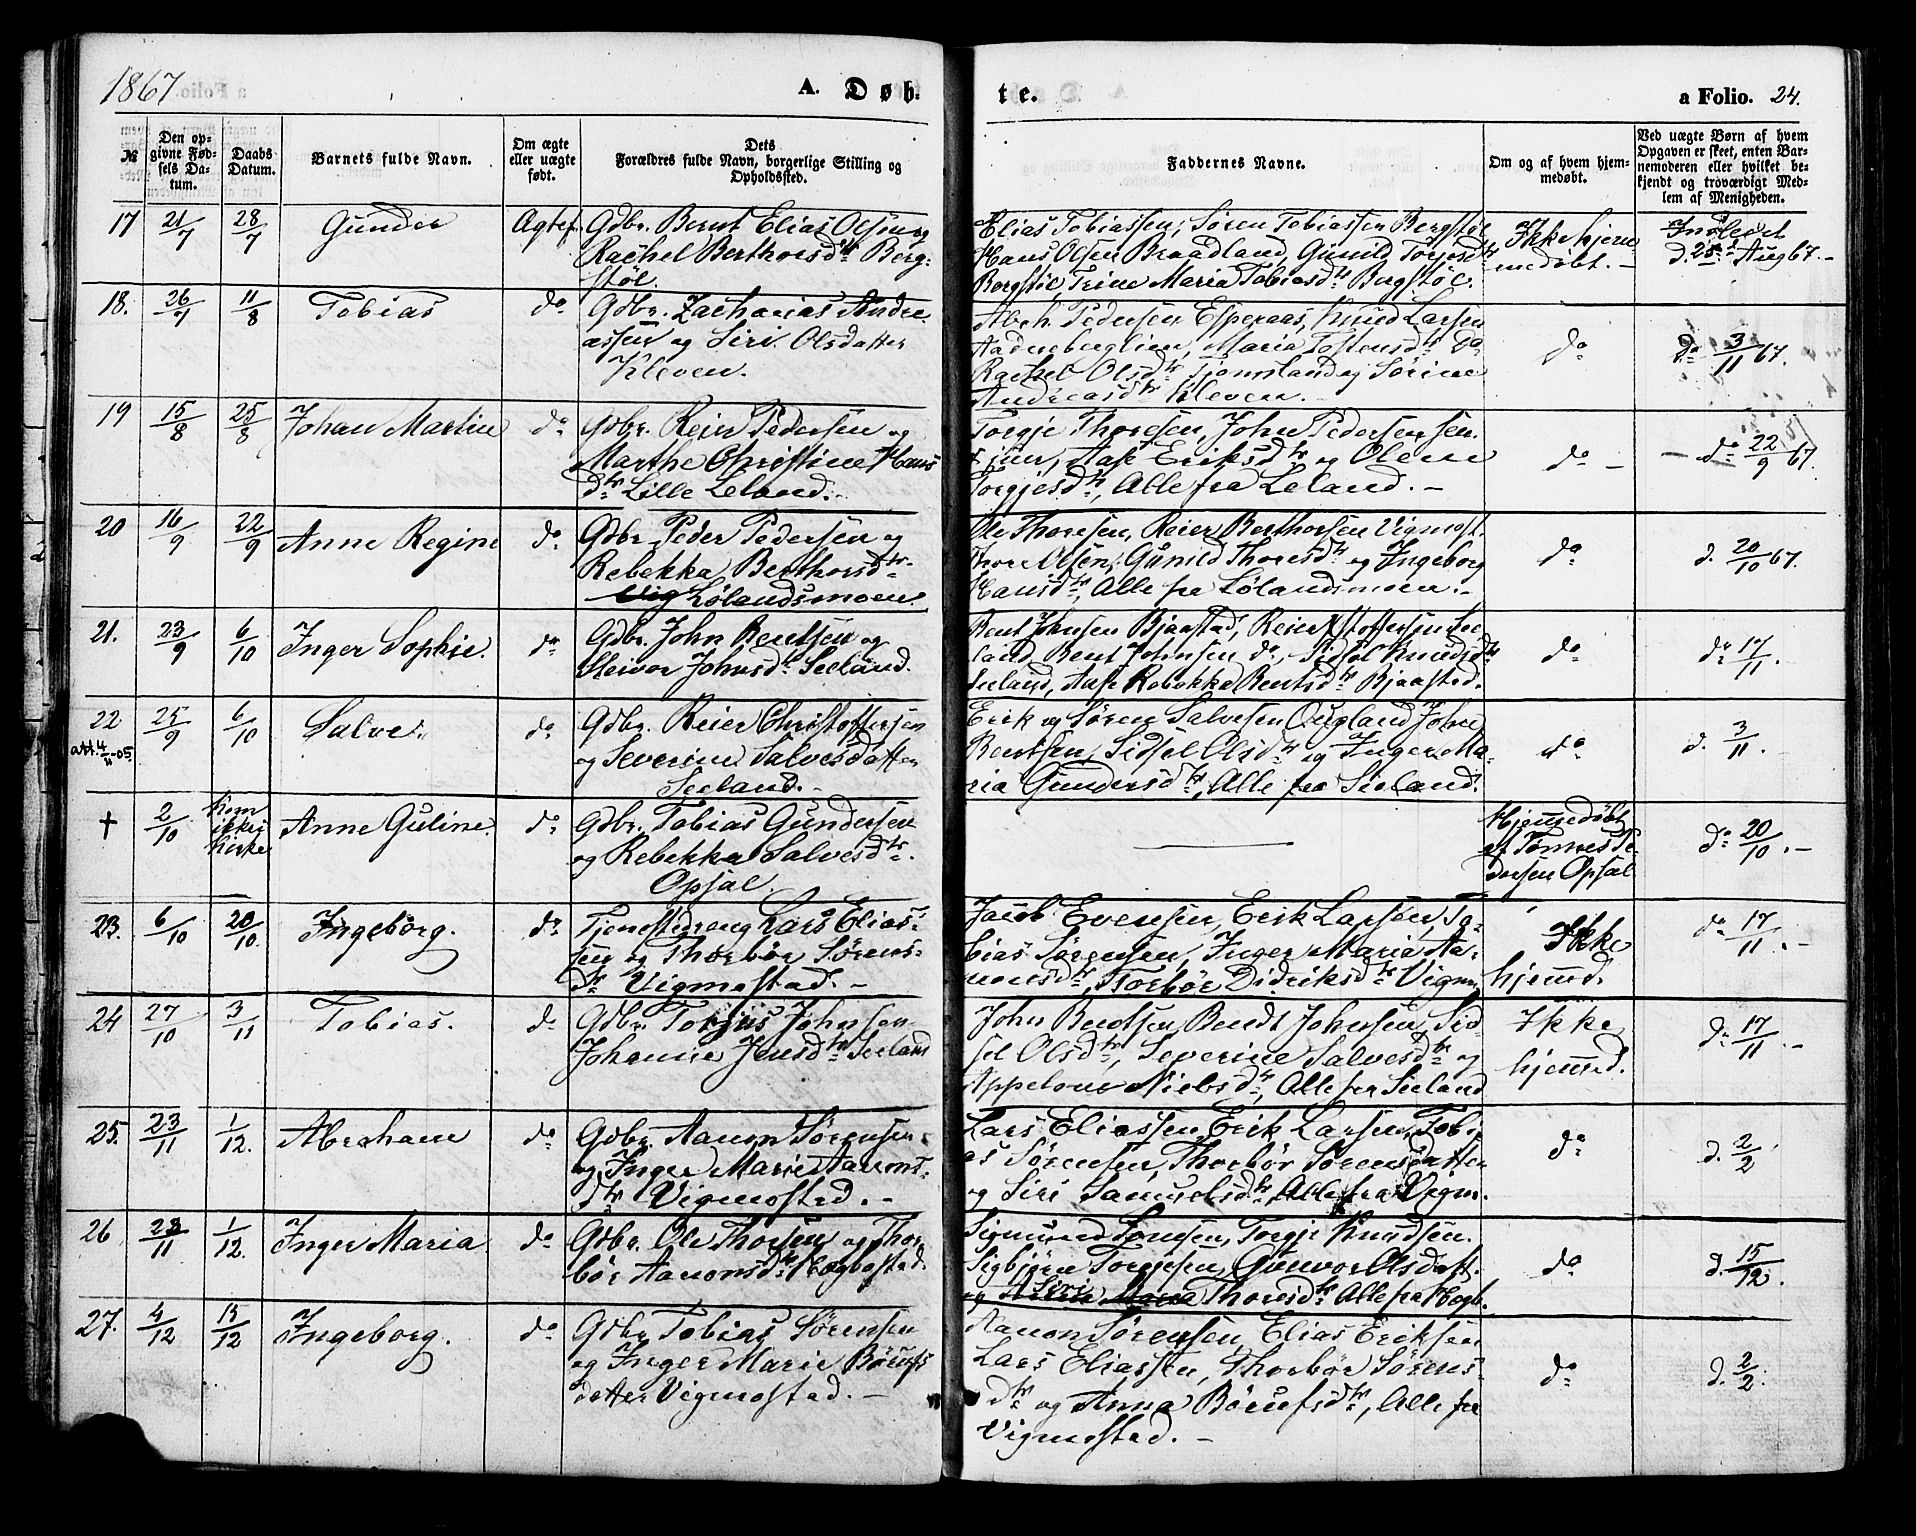 1867
A. Døb-
te.
a Folio. 24.
№
Den op-
givne Fød-
sels Da-
tum.
Daabs
Datum.
Barnets fulde Navn.
Om ægte
eller uægte
født.
Dets
Forældres fulde Navn, borgerlige Stilling og
Opholdssted.
Faddernes Navne.
Om og af hvem hjem-
medøbt.
Ved uægte Børn af hvem
Opgaven er skeet, enten Bar-
nemoderen eller hvilket be-
kjendt og troværdigt Med-
lem af Menigheden.
17 21/7 28/7 Gunder Ægtef.
Gdbr. Bernt Elias Olsen og
Rachel Berthorsdtr Berg-
støl.
Elias Tobiassen, Søren Tobiassen Bergstøl
Hans Olsen Braadland, Gunild Torjesdtr
Bergstøl, Trine Maria Tobiasdtr Bergstøl.
Ikke hjem
medøbt. -
Indlevet
d. 25 Aug 67. -
18. 26/7 11/8 Tobias do
Gdbr. Zacharias Andre
assen og Siri Olsdatter
Kleven.
Abrh. Pedersen Esperaas, Knud Larsen
Aadneberglien, Maria Tostensdtr do
Rachel Olsdtr Tjomsland og Sørine
Andreasdtr Kleven. -
do
do 3/11 67.
19 15/8 25/8 Johan Martin do
Gdbr. Reier Pedersen og
Marthe Christine Hans
dtr Lille Leland. -
Torgje Thoresen, John Pedersen sen.
Aase Eriksdtr og Olene
Torgjesdtr, Alle fra Leland. -
do -
- do 22/9 67.
20 16/9 22/9 Anne Regine do
Gdbr. Peder Pedersen og
Rebekka Berthorsdtr
Vig Lølandsmoen.
Ole Thoresen, Reier Berthorsen Vigmost.
Thore Olsen, Gunild Thoresdtr og Ingeborg
Hansdtr, Alle fra Lølandsmoen. -
do
d. 20/10 67.
21. 23/9 6/10 Inger Sophie. do
Gdbr. John Bentsen og
Steivor Johnsdtr Seeland.
Bent Johnsen Bjaastad, Reier Xstoffersen See
land, Bent Johnsen do, Sidsel Knudsdtr
Seeland, Aase Rebekka Bentsdtr Bjaastad.
do
do 17/11.
22 25/9 6/10 Salve. do
att. 4/11-05
Gdbr. Reier Christoffersen
og Severine Salvesdatter
Seeland. -
Erik og Søren Salvesen Ougland, John
Bentsen, Sidsel Olsdtr og Inger Ma-
ria Gundersdtr, Alle fra Seeland.
do
d. 3/11. -
† 2/10 Kom
ikke i
Kirke Anne Guline. do
Gdbr. Tobias Gundersen
og Rebekka Salvesdtr.
Opsal.
Hjemmedøbt
af Tønnes Pe
dersen Opsal
do 20/10. -
23. 6/10 20/10. Ingeborg. do
Tjenestedreng Lars Elias-
sen og Thorbør Sørens-
dtr Vigmostad. -
Jacob Evensen, Erik Larsen, To-
bias Sørensen, Inger Maria Aa-
nonsdtr, Torbør Didriksdtr Vigm.
Ikke
hjemd.
do 17/11. -
24 27/10 3/11 Tobias. do
Gdbr. Torjus Johnsen
Johanne Jensdtr Seeland
John Bentsen, Bendt Johnsen, Sid
sel Olsdtr, Severine Salvesdtr og
Appelone Nielsdtr, Alle fra Seeland
Ikke
hjemmd.
do 17/11. -
25. 23/11 1/12. Abraham do
Gdbr. Aanon Sørensen
og Inger Marie Aanons-
dtr Vigmostad. -
Lars Eliassen, Erik Larsen, Tobi
as Sørensen, Thorbør Sørensdatter
og Siri Samuelsdtr, Alle fra Vigm.
do
d. 2/2
26 23/11 1/12. Inger Maria do
Gdbr. Ole Thorsen og Thor
bør Aanonsdtr Høgbostad.
Sigmund Tønnsen, Torgje Knudsen.
Sigbjørn Torgisen, Gunvor Olsdatt.
og Siri Maria Thoresdtr Alle fra Høgb.
do
d. 15/12.
27. 4/12 15/12 Ingeborg. do
Gdbr. Tobias Sørensen
og Inger Marie Børufs
datter Vigmostad. -
Aanon Sørensen, Elias Eriksen
Lars Eliassen, Thorbør Sørens-
dtr og Anna Børufsdtr, Alle fra
Vigmostad. -
do
d. 2/2.